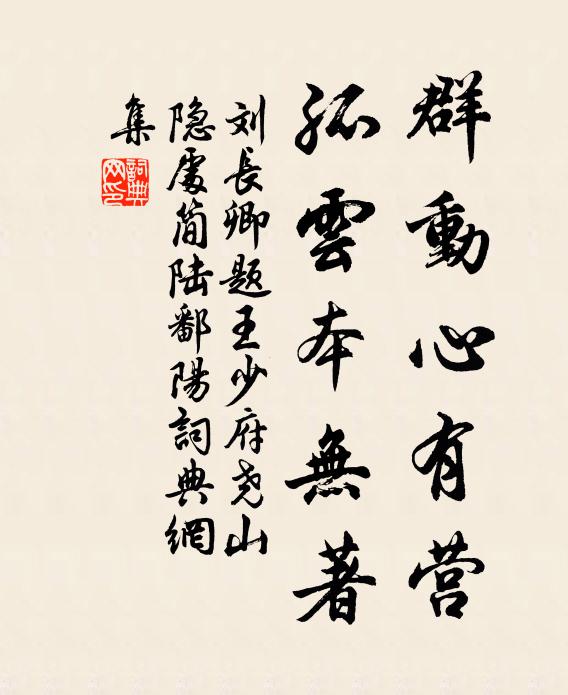 群動心有营
孤雲本無著
刘長卿题王少府尧山
隐處简陆鄱陽詞典網
集
詞典網印